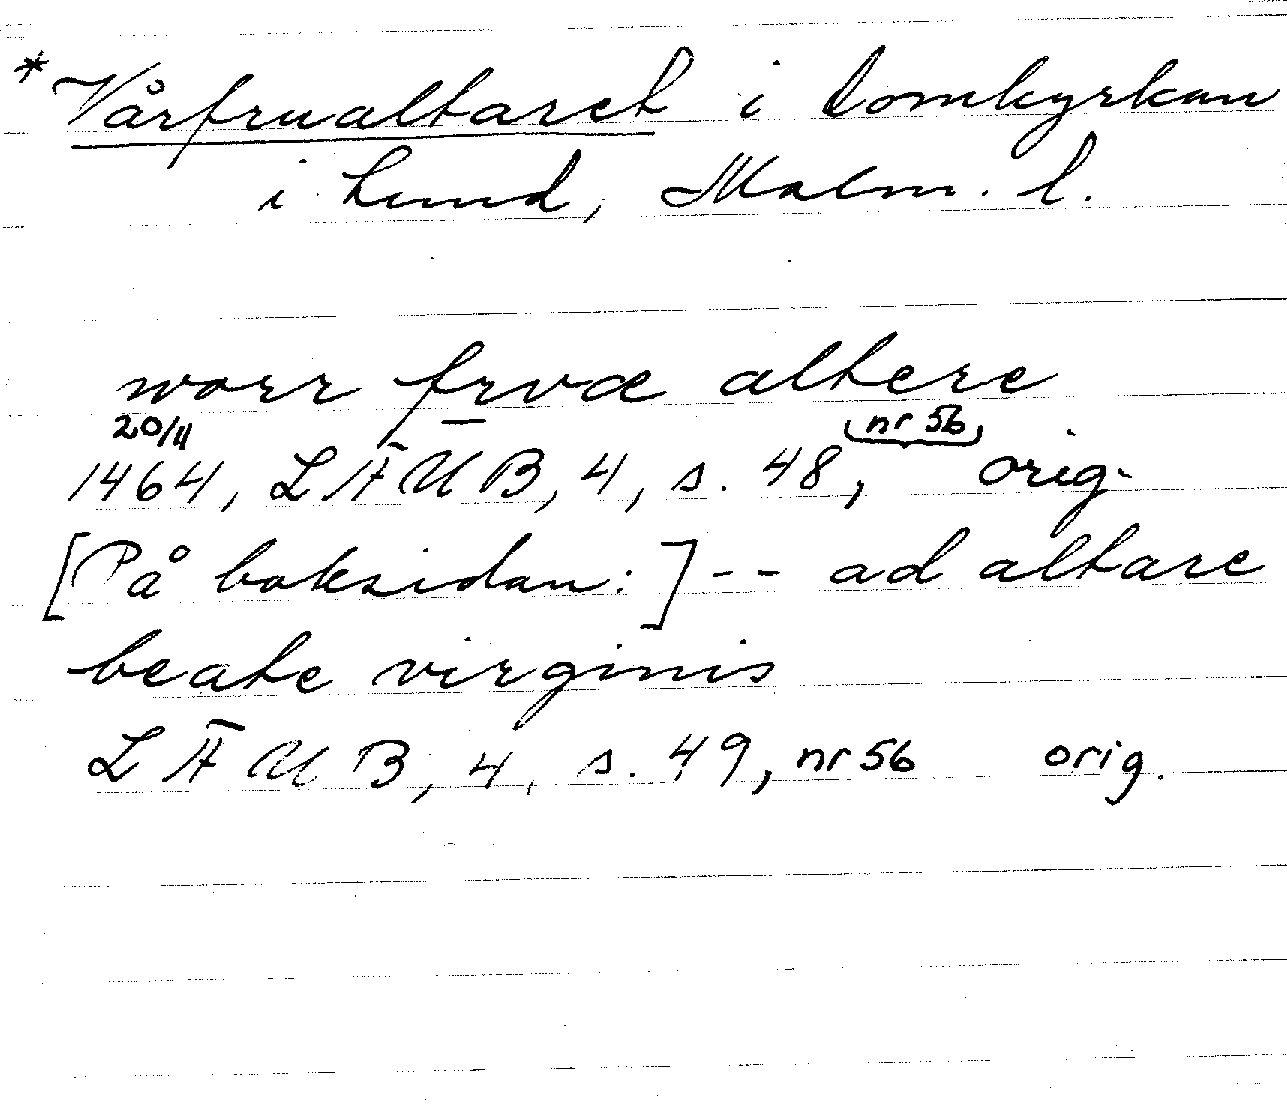 *Vårfrualtaret i domkyrkan
i Lund, Malm. l.
worr frvæ altere
20/11
1464, LÄUB, 4, s. 48, nr 56 orig.
[På baksidan:] -- ad altare
beate virginis
LÄUB, 4, s. 49, nr 56 orig.